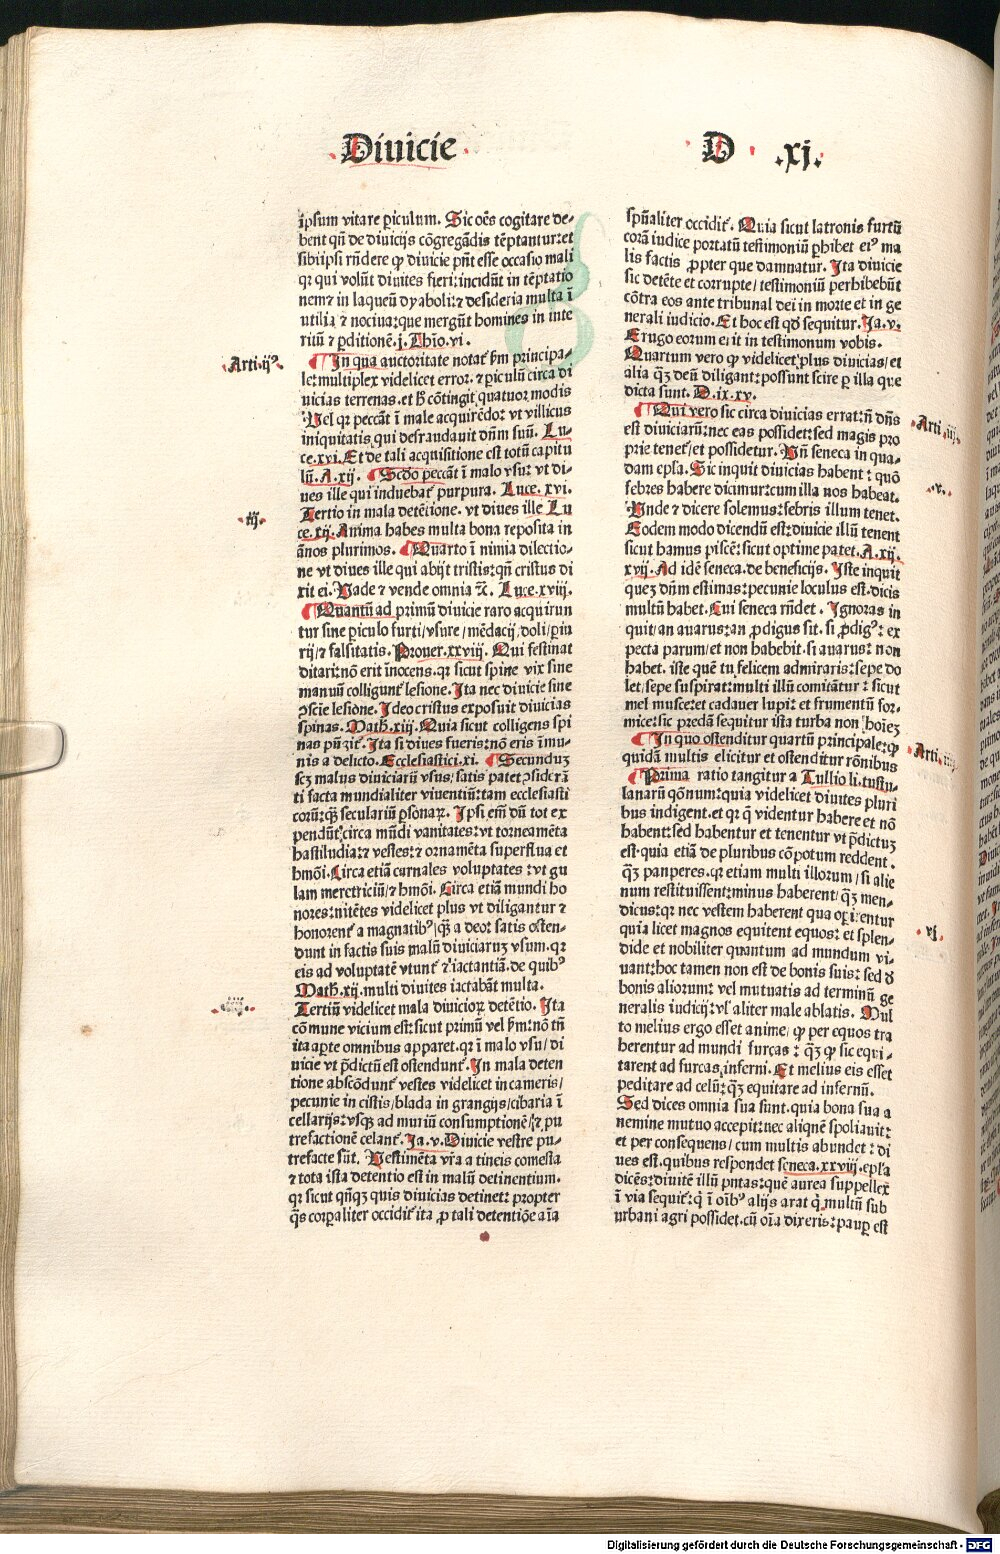 Diuicie
D .xj.
ip̄sum vitare ꝑiculum. Sic oēs cogitare de-
bent qn̄ de diuicijs cōgregādis tēptantur: et
sibiipsi rn̄dere ꝙ diuicie pn̄t esse occasio mali
qꝛ qui volūt diuites fieri: incidūt in tēptatio
nem ⁊ in laqueū dyaboli: ⁊ desideria multa ī
utilia ⁊ nociua: que mergūt homines in inte
ritū ⁊ ꝑditionē. j. Thio. vi.
Arti. ijꝰ.
In qua auctoritate notat̄ ẜm principa-
le: multiplex videlicet error. ⁊ ꝑiculū circa di
uicias terrenas. et h̄ cōtingit quatuor modis
Uel qꝛ peccāt ī male acquirēdo: vt villicus
iniquitatis qui defraudauit dn̄m suū. Lu-
ce. xvi. Et de tali acquisitione est totū capitu
lū. A. xij. Scd̄o peccāt ī malo vsu: vt di-
ues ille qui induebat̄ purpura. Luce. xvi.
iij.
Tertio in mala detētione. vt diues ille Lu
ce. xij. Anima habes multa bona reposita in
ānos plurimos. Quarto ī nimia dilectio-
ne vt diues ille qui abijt tristis: qn̄ cristus di
xit ei. Uade ⁊ vende omnia ⁊c̄. Luce. xviij.
Quantū ad primū diuicie raro acquirun
tur sine ꝑiculo furti/vsure/mēdacij/doli/ꝑiu
rij/⁊ falsitatis. Prouer. xxviij. Qui festinat
ditari: nō erit īnocens. qꝛ sicut spine vix sine
manuū colligunt̄ lesione. Ita nec diuicie sine
ↄscie lesione. Ideo cristus exposuit diuicias
spinas. Math̄. xiij. Quia sicut colligens spi
nas pūgit̄. Ita si diues fueris: nō eris īmu-
nis a delicto. Ecclesiastici. xi. Secunduꝫ
scꝫ malus diuiciarū vsus/satis patet ↄsiderā
ti facta mundialiter viuentiū: tam ecclesiasti
corū: qꝫ̄ seculariū ꝑsonaꝝ. Ipsi em̄ dū tot ex
pendūt: circa mūdi vanitates: vt torneamēta
hastiludia: ⁊ vestes: ⁊ ornamēta superflua et
hm̄oi. Circa etiā carnales voluptates: vt gu
lam meretriciū/⁊ hm̄oi. Circa etiā mundi ho
nores: nitētes videlicet plus vt diligantur ⁊
honorent̄ a magnatibꝰ/qꝫ̄ a deo: satis osten-
dunt in factis suis malū diuiciaruꝫ vsum. qꝛ
eis ad voluptatē vtunt̄ ⁊ iactantiā. de quibꝰ
Math̄. xij. multi diuites iactabāt multa.
Tertiū videlicet mala diuicioꝝ detētio. Ita
cōmune vicium est: sicut primū vel ẜm: nō tn̄
ita aꝑte omnibus apparet. qꝛ ī malo vsu/di
uicie vt p̄dictū est ostendunt̄. In mala deten
tione abscōdunt̄ vestes videlicet in cameris/
pecunie in cistis/blada in grangijs/cibaria ī
cellarijs: vsqꝫ ad muriū consumptionē/⁊ pu
trefactionē celant̄. Ja. v. Diuicie vestre pu-
trefacte sūt. Uestimēta vr̄a a tineis comesta
⁊ tota ista detentio est in malū detinentium.
qꝛ sicut qn̄qꝫ quis diuicias detinet: propter
q̄s corꝑaliter occidit̄ ita ꝓ tali detentiōe aīa
spūaliter occidit̄. Quia sicut latronis furtū
corā iudice portatū testimoniū ꝑhibet eiꝰ ma
lis factis ꝓpter que damnatur. Ita diuicie
sic detēte et corrupte/testimoniū perhibebūt
cōtra eos ante tribunal dei in morte et in ge
nerali iudicio. Et hoc est qd̄ sequitur. Ja. v.
Erugo eorum erit in testimonum vobis.
Quartum vero ꝙ videlicet plus diuicias/et
alia qꝫ̄ deū diligant: possunt scire ꝑ illa que
dicta sunt. D. ix. xv.
Arti. iij.
Qui vero sic circa diuicias errat: n̄ dn̄s
est diuiciarū: nec eas possidet: sed magis pro
prie tenet̄/et possidetur. Un̄ seneca in qua-
dam epl̄a. Sic inquit diuicias habent: quō
.v.
febres habere dicimur: cum illa nos habeat.
Unde ⁊ dicere solemus: febris illum tenet.
Eodem modo dicendū est: diuicie illū tenent
sicut hamus piscē: sicut optime patet. A. xij.
xvij. Ad idē seneca. de beneficijs. Iste inquit
queꝫ dn̄m estimas: pecunie loculus est. dicis
multū habet. Cui seneca rn̄det. Ignoras in
quit/an auarus: an ꝓdigus sit. si ꝓdigꝰ: ex
pecta parum/et non habebit. si auarus: non
habet. iste quē tu felicem admiraris: sepe do
let/sepe suspirat: multi illū comitātur: sicut
mel musce: et cadauer lupi: et frumentū for-
mice: sic predā sequitur ista turba non hoīeꝫ
Arti. iiij.
In quo ostenditur quartū principale: ꝙ
quidā multis elicitur et ostenditur rōnibus
Prima ratio tangitur a Tullio li. tuscu-
lanarū qōnum: quia videlicet diuites pluri
bus indigent. et qꝛ q̄ videntur habere et nō
habent: sed habentur et tenentur vt p̄dictuꝫ
est. quia etiā de pluribus cōpotum reddent.
qꝫ̄ pauperes. qꝛ etiam multi illorum/si alie
num restituissent: minus haberent/qꝫ̄ men-
dicus: qꝛ nec vestem haberent qua oꝑirentur
vj.
quia licet magnos equitent equos: et splen-
dide et nobiliter quantum ad mundum vi-
uant: hoc tamen non est de bonis suis: sed d̄
bonis aliorum: vel mutuatis ad terminū ge
neralis iudicij: vl̓ aliter male ablatis. Mul
to melius ergo esset anime/ꝙ per equos tra
herentur ad mundi furcas: qꝫ̄ ꝙ sic equi-
tarent ad furcas inferni. Et melius eis esset
peditare ad celū: qꝫ̄ equitare ad infernū.
Sed dices omnia sua sunt. quia bona sua a
nemine mutuo accepit: nec aliquē spoliauit:
et per consequens/cum multis abundet: di
ues est. quibus respondet seneca. xxviij. epl̄a
dicēs: diuitē illū putas: quē aurea suppellex
ī via sequit̄: q̄ ī oībꝰ alijs arat q̄ multū sub
urbani agri possidet. cū oīa dixeris: pauꝑ est